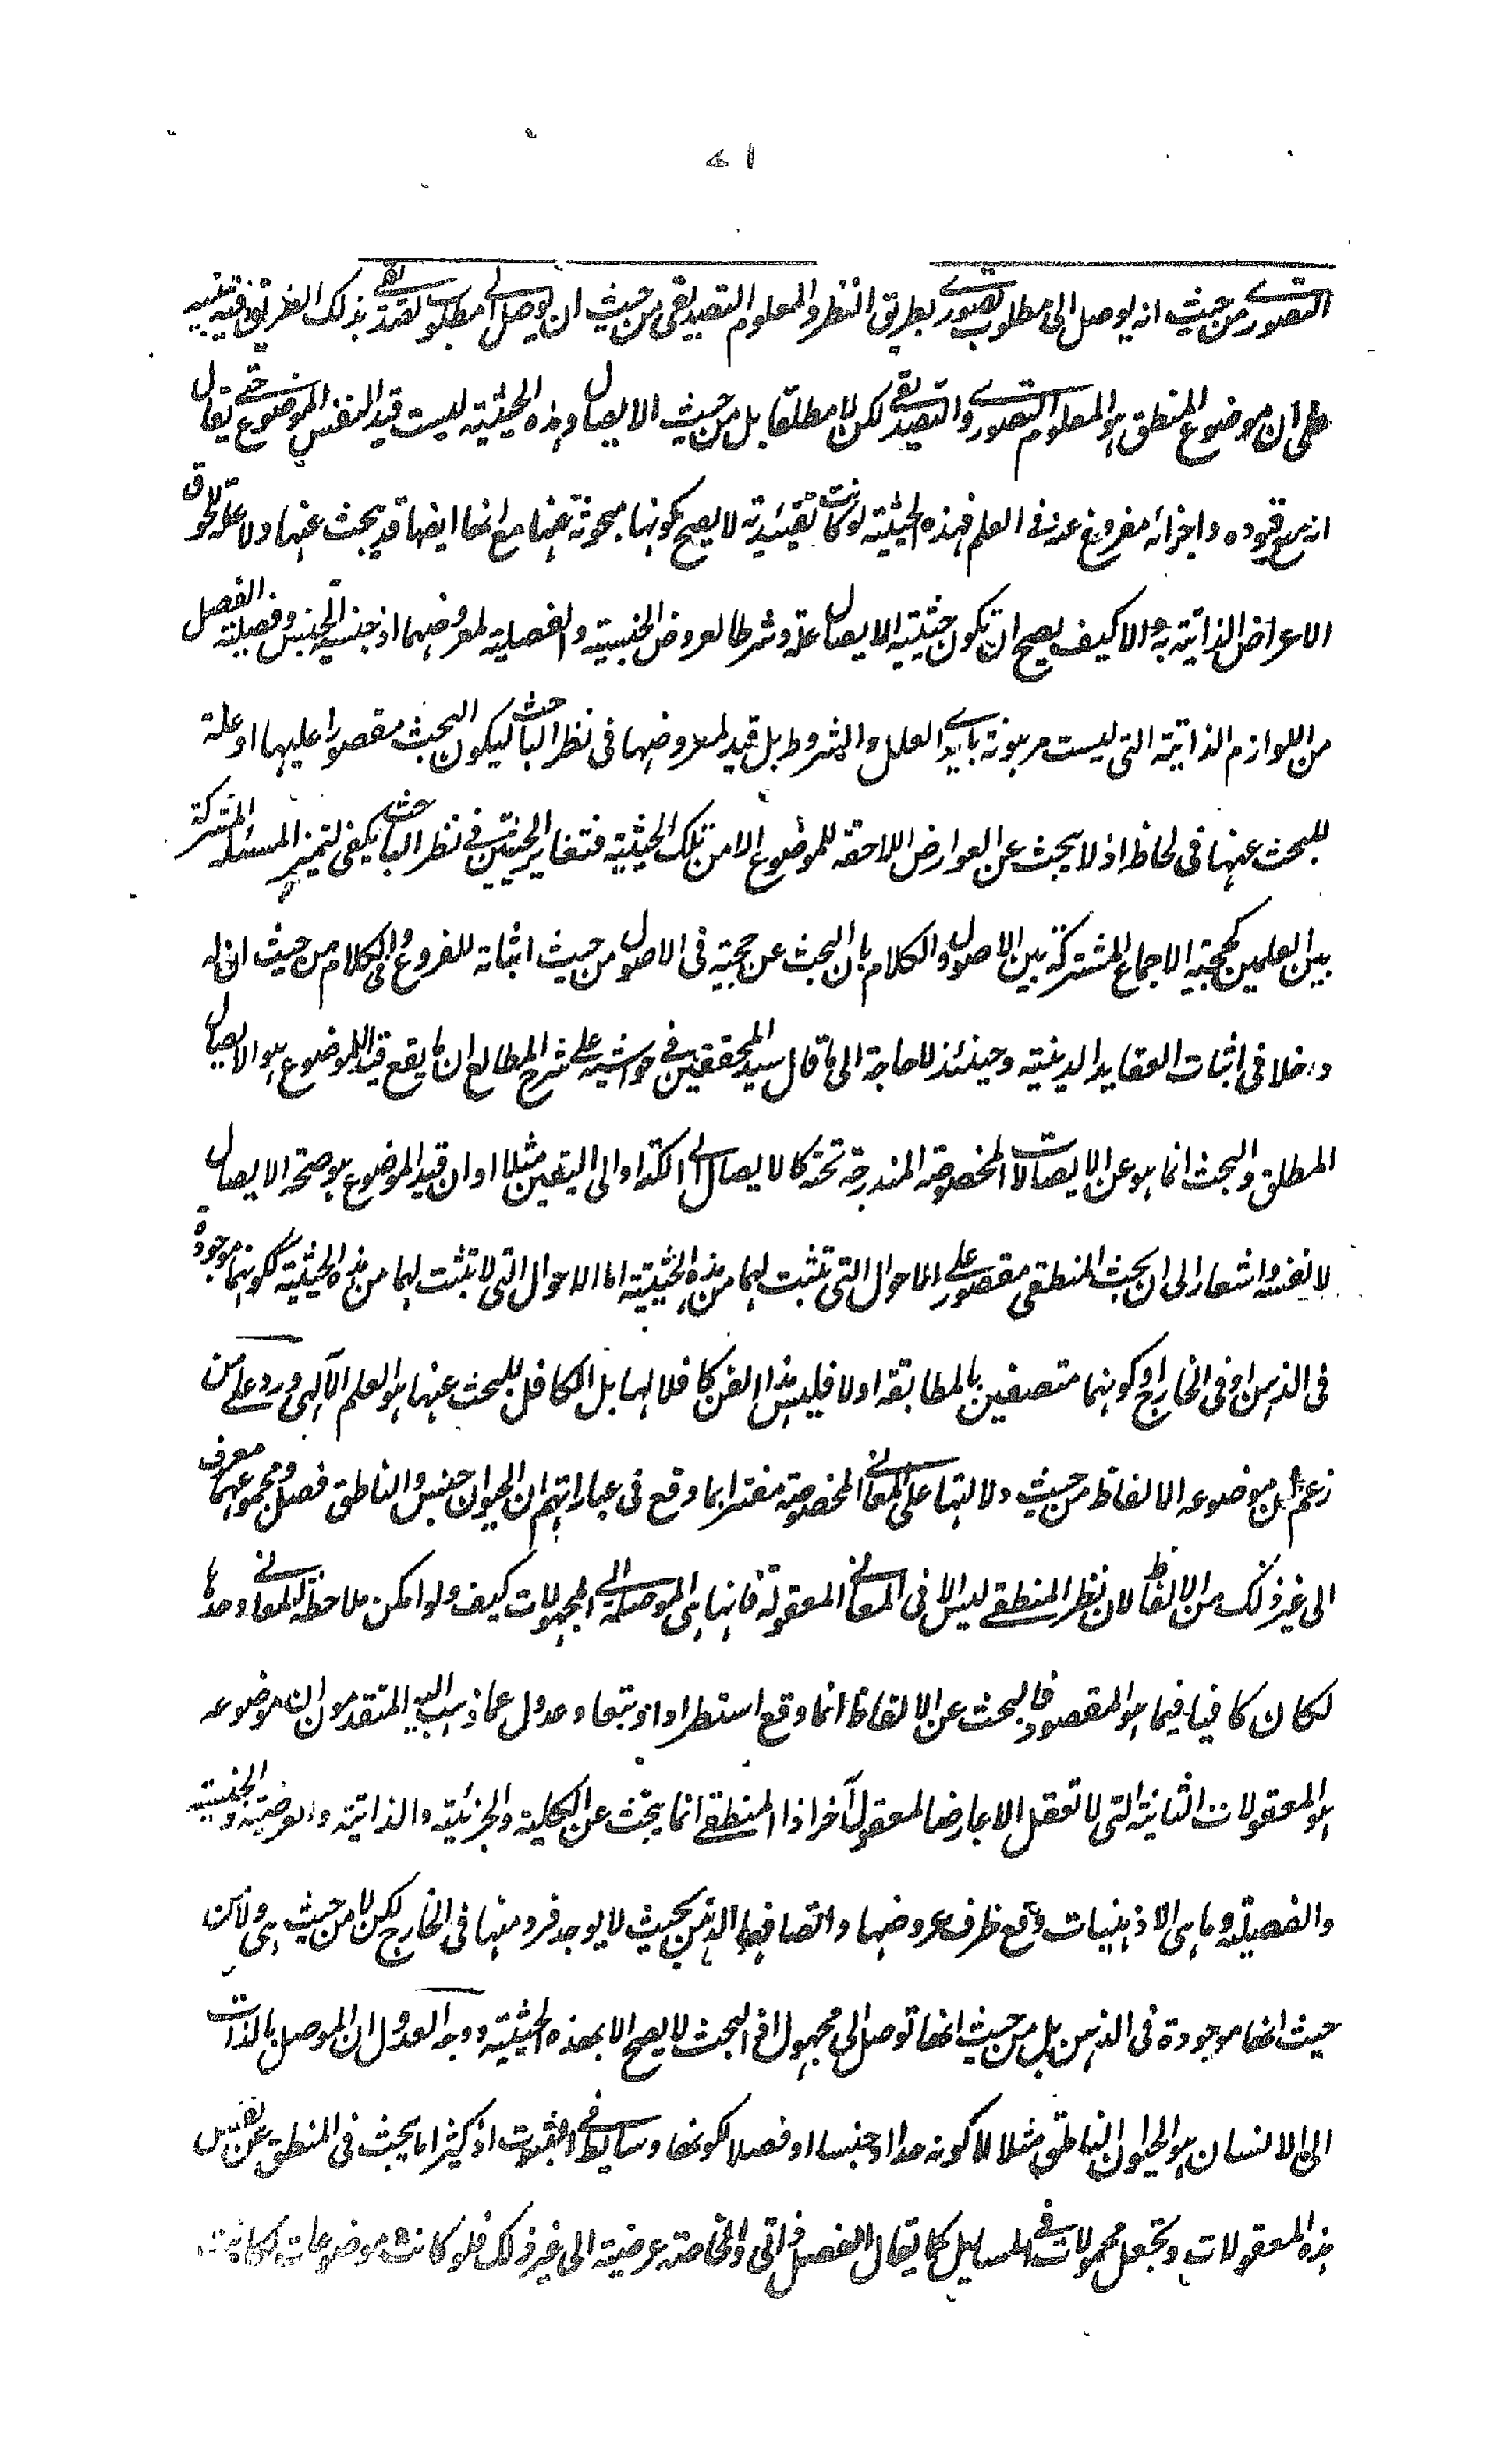 ٤١
التصوری من حیث انه یوصل الی مطلوب تصوری بطریق النظر والمعلوم التصدیقی من حیث ان یوصل الی مطلوب تصدیقی بذلک الطریق وفیه تنبیه
علی ان موضوع المنطق هو المعلوم التصوری والتصدیقی لکن لا مطلقا بل من حیث الایصال وهذه الحیثیة لیست قید النفس الموضوع حتی یقال
انه مع قیوده واجزائه مفروغ عنه فی العلم فهذه الحیثیة لو کانت تقییدیة لا یصح کونها مبحوثة عنها مع انها ایضا قد یبحث عنها ولا علة للحوق
الاعراض الذاتیة به والا کیف یصح ان تکون حیثیة الایصال علة وشرطا لعروض الجنسیة والفصلیة لمعروضهما اذ جنسیة الجنس وفصلیة الفصل
من اللوازم الذاتیة التی لیست مرهونة بایدی العلل والشروط بل قید لمعروضها فی نظر الباحث لیکون البحث مقصورا علیها او علة
للبحث عنها فی لحاظه اذ لا یبحث عن العوارض اللاحقة للموضوع الا من تلک الحیثیة فتغایر الحیثیتین فی نظر الباحث یکفی لتمیز المسئلة المشترکة
بین العلمین کحجیة الاجماع المشترکة بین الاصول والکلام بان البحث عن حجیة فی الاصول من حیث اثباته للفروع وفی الکلام من حیث ان له
دخلا فی اثبات العقاید الدینیة وحینئذ لا حاجة الی ما قال سید المحققین فی حواشیه علی شرح المطالع ان ما یقع قید اللموضوع هو الایصال
المطلق والبحث انما هو عن الایصالات المخصوصة المندرجة تحته کالایصال الی الکنه او الی الیقین مثلا او ان قید الموضوع هو صحة الایصال
لا نفسه واشعار الی ان بحث المنطقی مقصور علی الاحوال التی تثبت لهما من هذه الحیثیة اما الاحوال التی لا تثبت لهما من هذه الحیثیة ککونهما موجودة
فی الذهن او فی الخارج او کونهما متصفین بالمطابقة او لا فلیس هذا الفن کافلا لها بل الکافل للبحث عنها هو العلم الآلهی ورد علی من
زعم ان موضوعه الالفاظ من حیث دلالتها علی المعانی المخصوصة مغترا بما وقع فی عباراتهم ان الحیوان جنس والناطق فصل ومجموعهما معرف
الی غیر ذلک من الالفاظ لان نظر المنطقی لیس الا فی المعانی المعقولة فانها هی الموصلة الی المجهولات کیف ولو امکن ملاحظة المعانی وحدها
لکان کافیا فیما هو المقصود فالبحث عن الالفاظ انما وقع استطرادا وتبعا وعدول عما ذهب الیه المتقدمون ان موضوعه
هو المعقولات الثانیة التی لا تعقل الا عارضا لمعقول آخر اذ المنطقی انما یبحث عن الکلیة والجزئیة والذاتیة والعرضیة والجنسیة
والفصلیة وما هی الا ذهنیات وقع ظرف عروضها واتصافها الذهن بحیث لا یوجد فرد منها فی الخارج لکن لا من حیث هی ولا من
حیث انها موجودة فی الذهن بل من حیث انها توصل الی مجهول اذ البحث لا یصح الا بهذه الحیثیة ووجه العدول ان الموصل بالذات
الی الانسان هو الحیوان الناطق مثلا لا کونه حدا او جنسا او فصلا لکونها وسایط فی الثبوت اذ کثیرا ما یبحث فی المنطق عن نفس
هذه المعقولات وتجعل محمولات فی المسایل کما یقال الفصل ذاتی والخاصة عرضیة الی غیر ذلک فلو کانت موضوعات لکانت